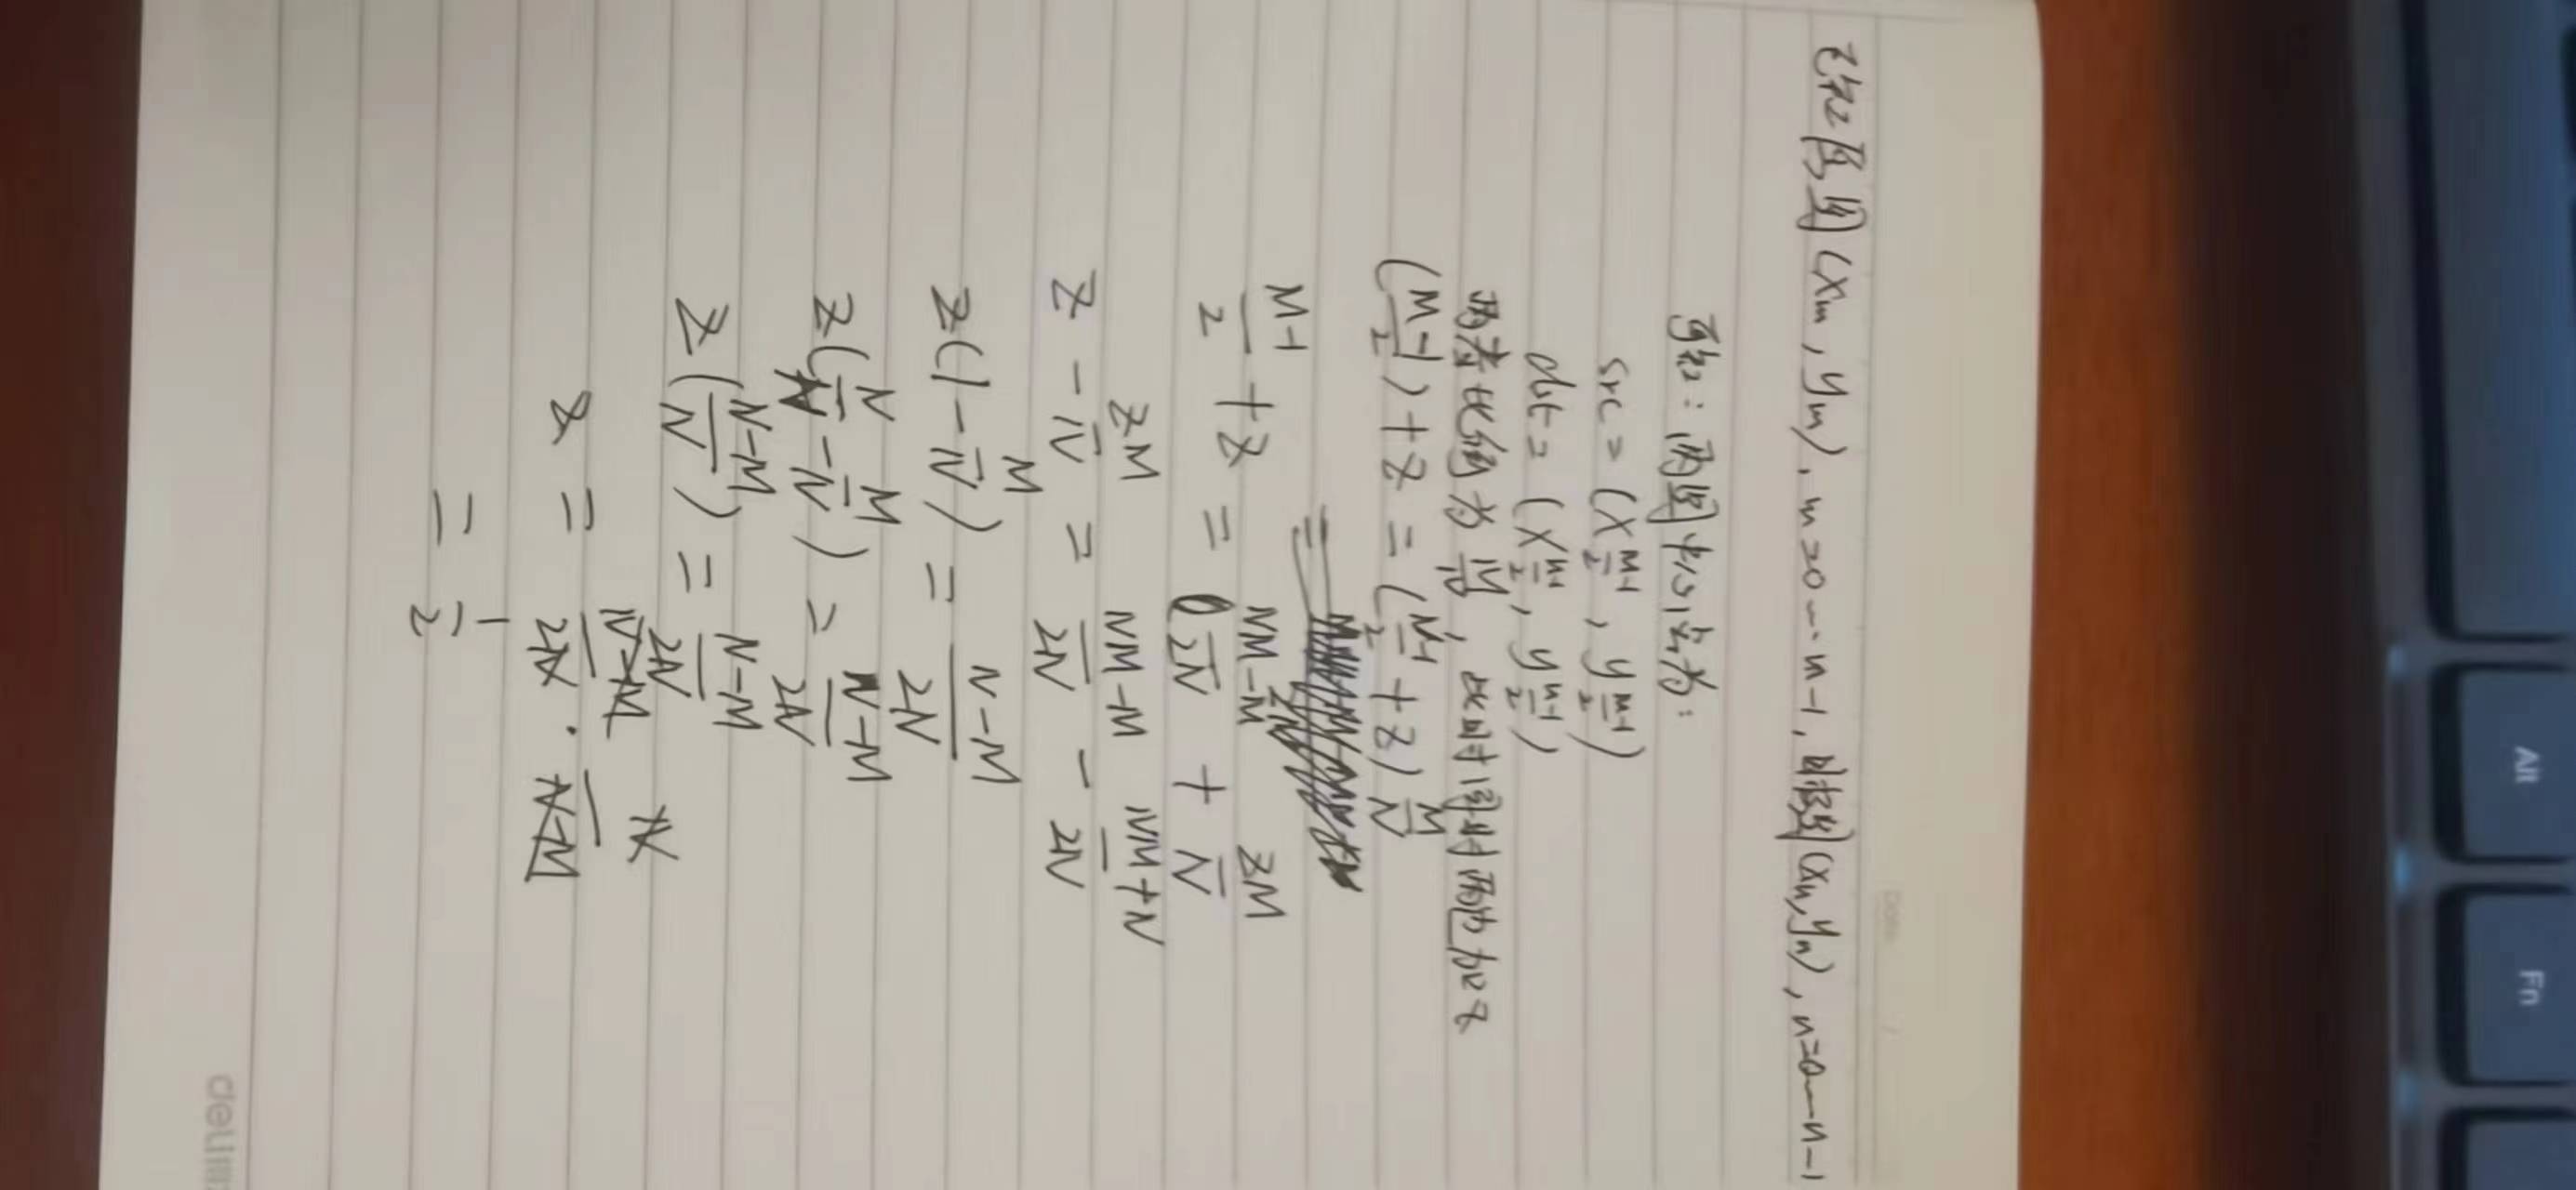 已知原图(Xm,ym), m=0~n-1, 目标图(Xn,yn), n=0~n-1
可知:两图中心点为:
src=(X(M-1)/2, y(M-1)/2)
dst=(X(n-1)/2, y(n-1)/2)
两者比例为 M/N, 此时同时两边加Z
((M-1)/2)+Z=((N-1)/2+Z)M/N
(M-1)/2+Z=(NM-M)/2N+ZM/N
Z-ZM/N=(NM-M)/2N-(NM+N)/2N
Z(1-M/N)=(N-M)/2N
Z(N/N-M/N)=(N-M)/2N
Z((N-M)/N)=(N-M)/2N
Z=(N-M)/2N·N/(N-M)
=1/2
deli
Alt
Fn